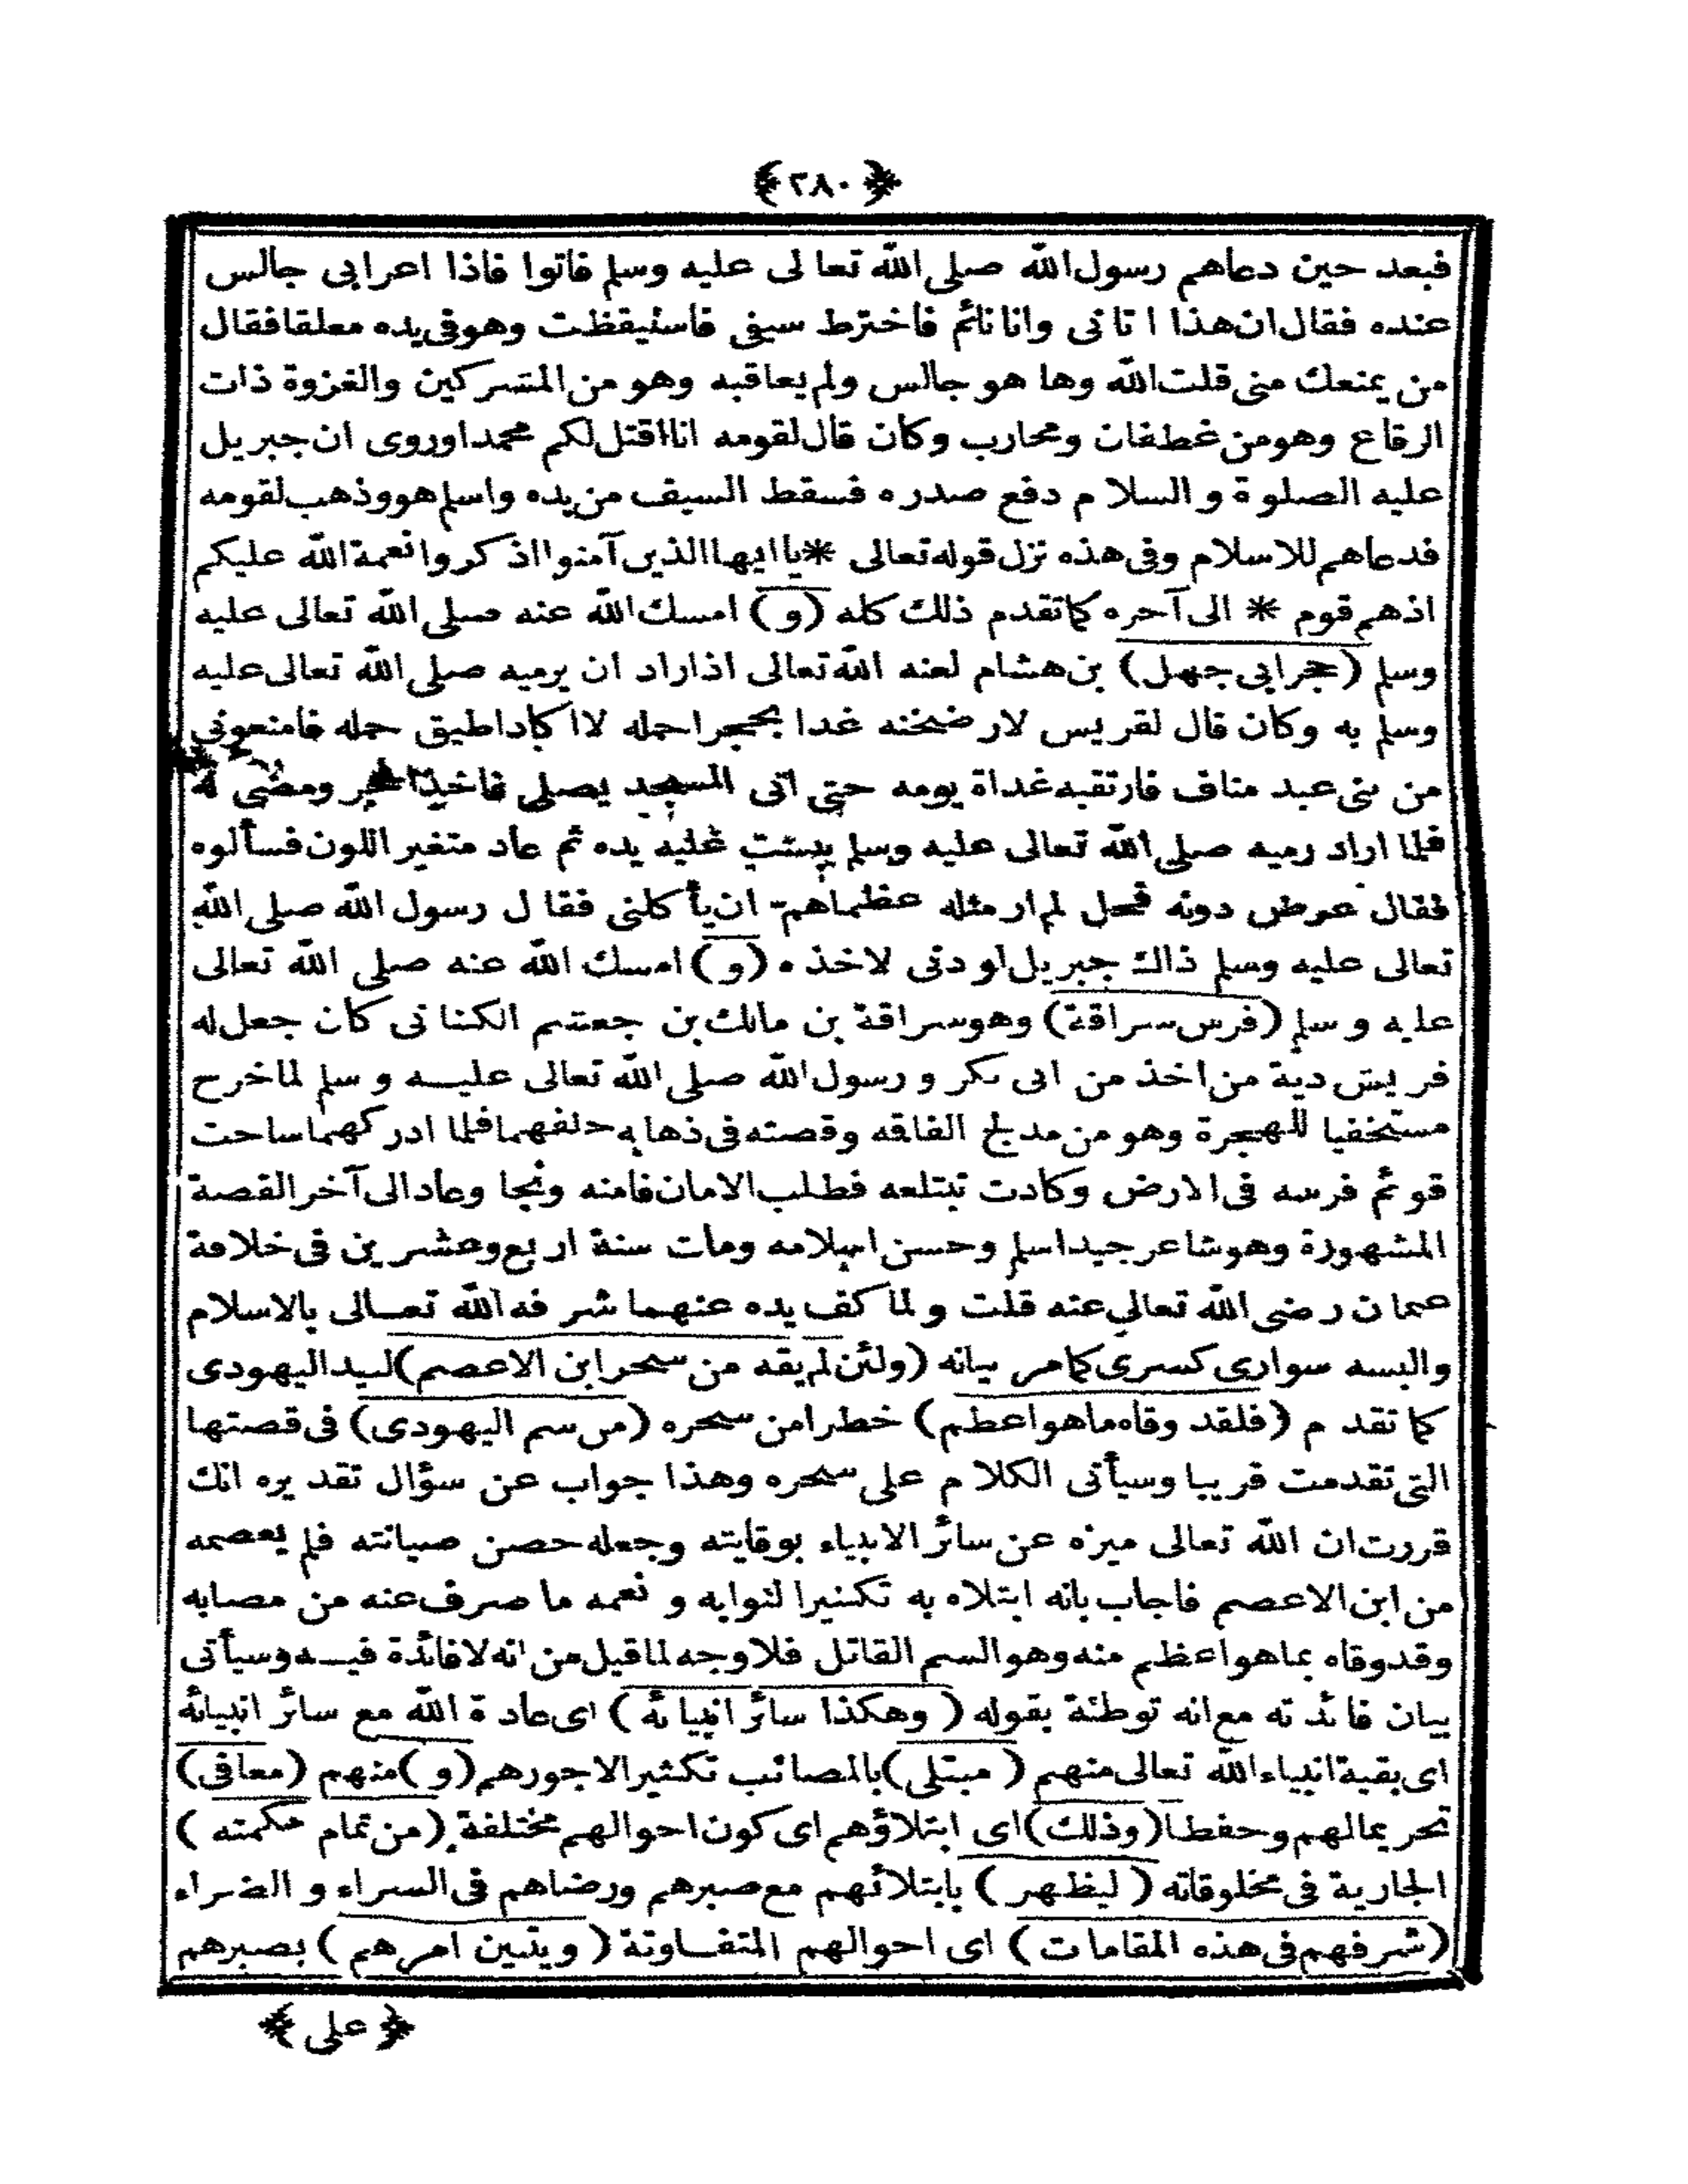 ﴿ ٢٨٠ ﴾
فبعد حين دعاهم رسول الله صلى الله تعالى عليه وسلم فاتوا فاذا اعرابى جالس
عنده فقال ان هذا اتانى وانا نائم فاخترط سيفى فاستيقظت وهو فى يده معلقا فقال
من يمنعك منى قلت الله وها هو جالس ولم يعاقبه وهو من المشركين والغزوة ذات
الرقاع وهو من غطفان ومحارب وكان قال لقومه انا اقتل لكم محمدا وروى ان جبريل
عليه الصلوة والسلام دفع صدره فسقط السيف من يده واسلم هو وذهب لقومه
فدعاهم للاسلام وفى هذه نزل قوله تعالى * يا ايها الذين آمنوا اذكروا نعمة الله عليكم
اذهم قوم * الى آخره كما تقدم ذلك كله (و) امسك الله عنه صلى الله تعالى عليه
وسلم (حجر ابى جهل) بن هشام لعنه الله تعالى اذ اراد ان يرميه صلى الله تعالى عليه
وسلم به وكان قال لقريس لارضخنه غدا بحجر احمله لا اكاد اطيق حمله فامنعونى
من بنى عبد مناف فارتقبه غداة يومه حتى اتى المسجد يصلى فاخذ الحجر ومضى له
فلما اراد رميه صلى الله تعالى عليه وسلم يبست عليه يده ثم عاد متغير اللون فسألوه
فقال عرض دونه فحل لم ار مثله عظما هم ان يأكلنى فقال رسول الله صلى الله
تعالى عليه وسلم ذاك جبريل لو دنى لاخذه (و) امسك الله عنه صلى الله تعالى
عليه وسلم (فرس سراقة) وهو سراقة بن مالك بن جعشم الكنانى كان جعل له
قريش دية من اخذ من ابى بكر ورسول الله صلى الله تعالى عليه وسلم لما خرج
مستخفيا للهجرة وهو من مدلج القافه وقصته فى ذهابه خلفهما فلما ادركهما ساخت
قوئم فرسه فى الارض وكادت تبتلعه فطلب الامان فامنه ونجا وعاد الى آخر القصة
المشهورة وهو شاعر جيد اسلم وحسن اسلامه ومات سنة اربع وعشرين فى خلافة
عثمان رضى الله تعالى عنه قلت ولما كف يده عنهما شرفه الله تعالى بالاسلام
والبسه سوارى كسرى كما مر بيانه (ولئن لم يقه من سحر ابن الاعصم) لبيد اليهودى
كما تقدم (فلقد وقاه ما هو اعظم) خطرا من سحره (من سم اليهودى) فى قصتها
التى تقدمت قريبا وسيأتى الكلام على سحره وهذا جواب عن سؤال تقديره انك
قررت ان الله تعالى ميزه عن سائر الانبياء بوقايته وجعله حصن صيانته فلم يعصمه
من ابن الاعصم فاجاب بانه ابتلاه به تكثيرا لثوابه ونعمه ما صرف عنه من مصابه
وقد وقاه بما هو اعظم منه وهو السم القاتل فلا وجه لما قيل من انه لا فائدة فيه وسيأتى
بيان فائدته مع انه توطئة بقوله (وهكذا سائر انبيائه) اى عادة الله مع سائر انبيائه
اى بقية انبياء الله تعالى منهم (مبتلى) بالمصائب تكثيرا لاجورهم (و) منهم (معافى)
تحريما لهم وحفظا (وذلك) اى ابتلاؤهم اى كون احوالهم مختلفة (من تمام حكمته)
الجارية فى مخلوقاته (ليظهر) بابتلائهم مع صبرهم ورضاهم فى السراء والضراء
(شرفهم فى هذه المقامات) اى احوالهم المتفاوتة (ويتبين امرهم) بصبرهم
﴿ على ﴾